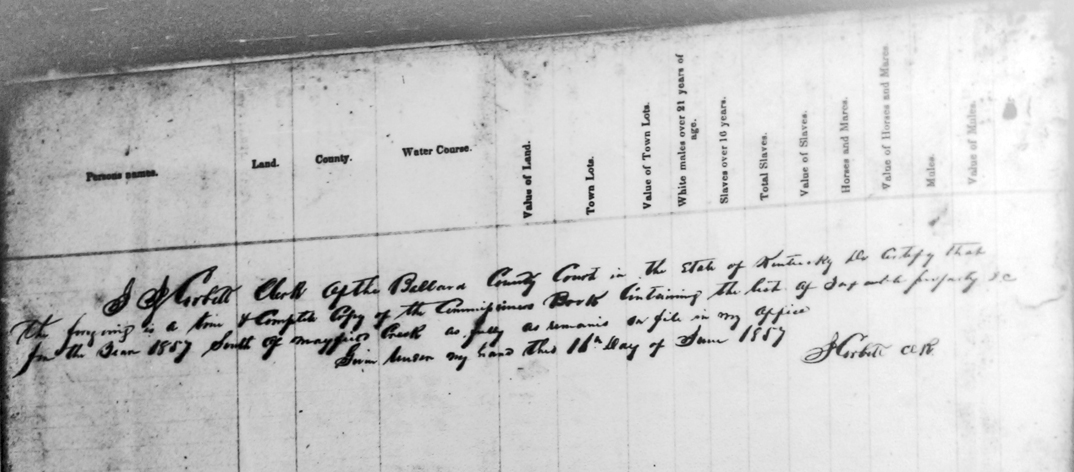 Persons names.
Land.
County.
Water Course.
Value of Land.
Town Lots.
Value of Town Lots.
White males over 21 years of age.
Slaves over 16 years.
Total Slaves.
Value of Slaves.
Horses and Mares.
Value of Horses and Mares.
Mules.
Value of Mules.
I J Corbett Clerk of the Ballard County Court in the State of Kentucky Do Certify that
the foregoing is a true & Complete Copy of the Commissioners Book Containing the list of Taxable property &c
for the Year 1857 South of Mayfield Creek as fully as remains on file in my office
Given under my hand this 11th Day of June 1857
J Corbett Clk